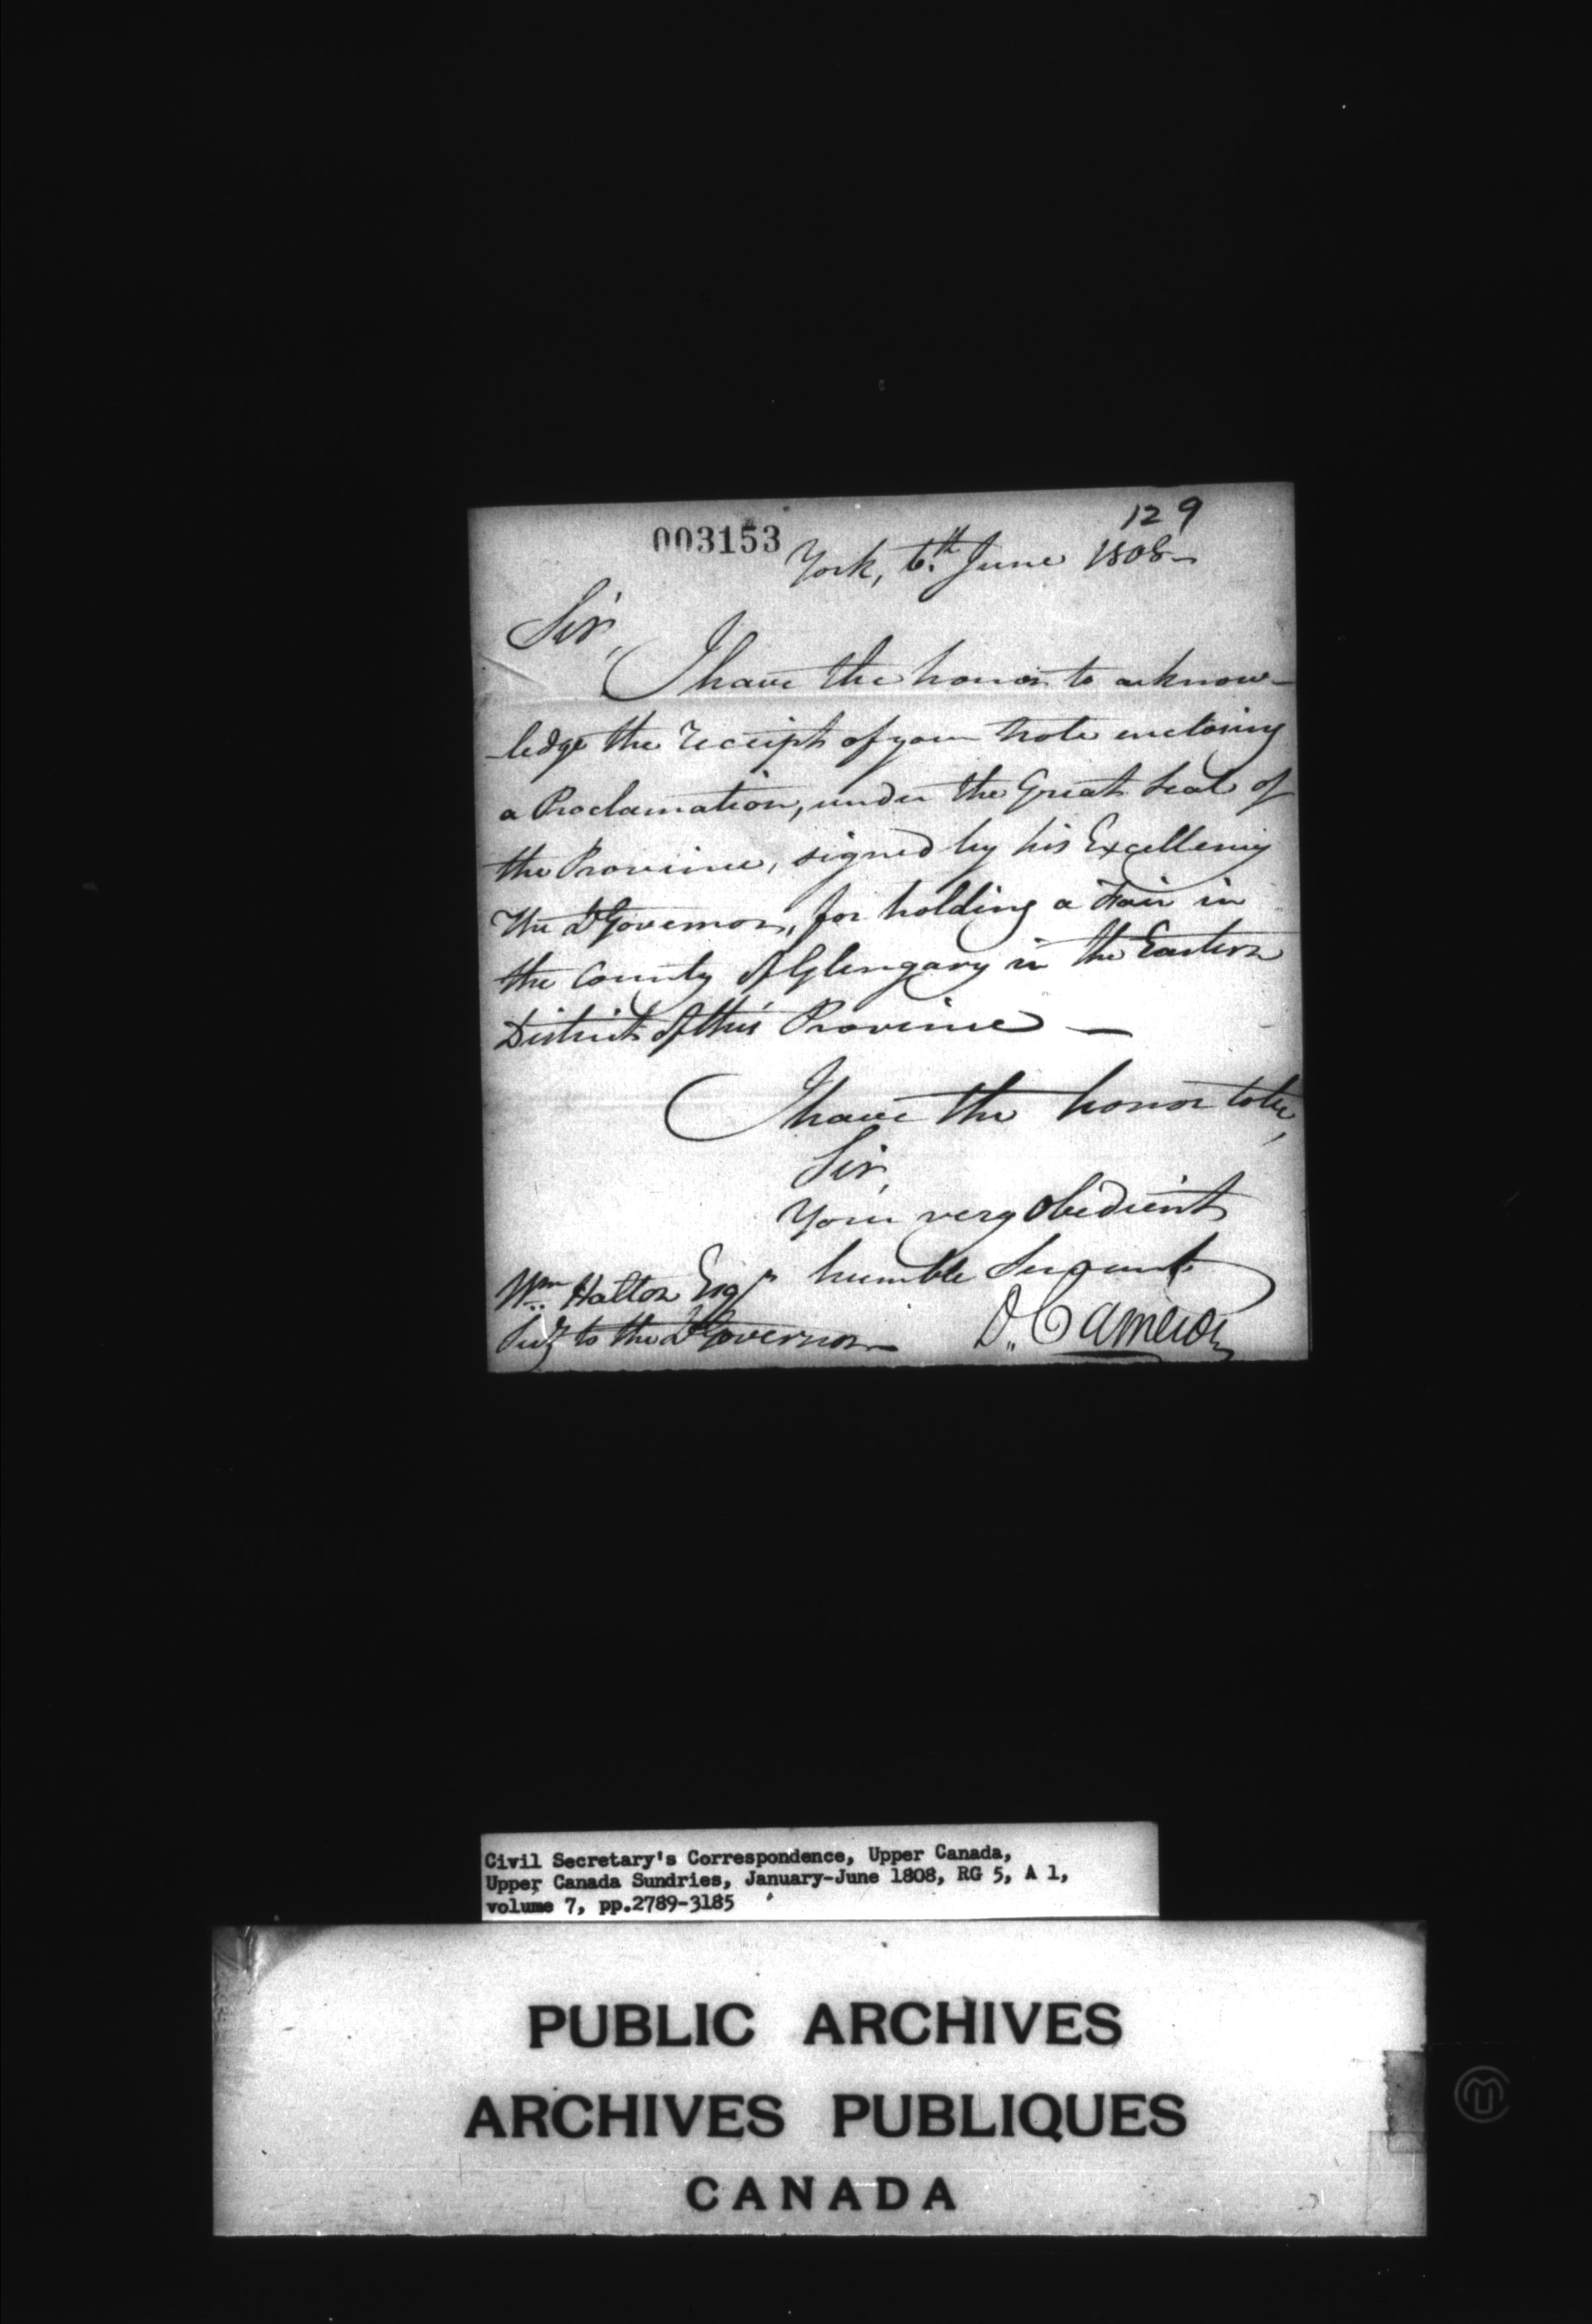 129
003153
York, 6.th June 1808-
Sir,
I have the honor to acknow-
-ledge the Receipt of your Note enclosing
a Proclamation, under the Great Seal of
the Province, signed by his Excellency
The Lt Governor, for holding a Fair in
the County of Glengary in the Eastern
District of this Province —
I have the honor to be,
Sir,
Your very obedient
humble Servant
D. Cameron
Wm Halton Esqr
Secy to the Lt Governor
Civil Secretary's Correspondence, Upper Canada,
Upper Canada Sundries, January-June 1808, RG 5, A 1,
volume 7, pp.2789-3185
PUBLIC ARCHIVES
ARCHIVES PUBLIQUES
CANADA